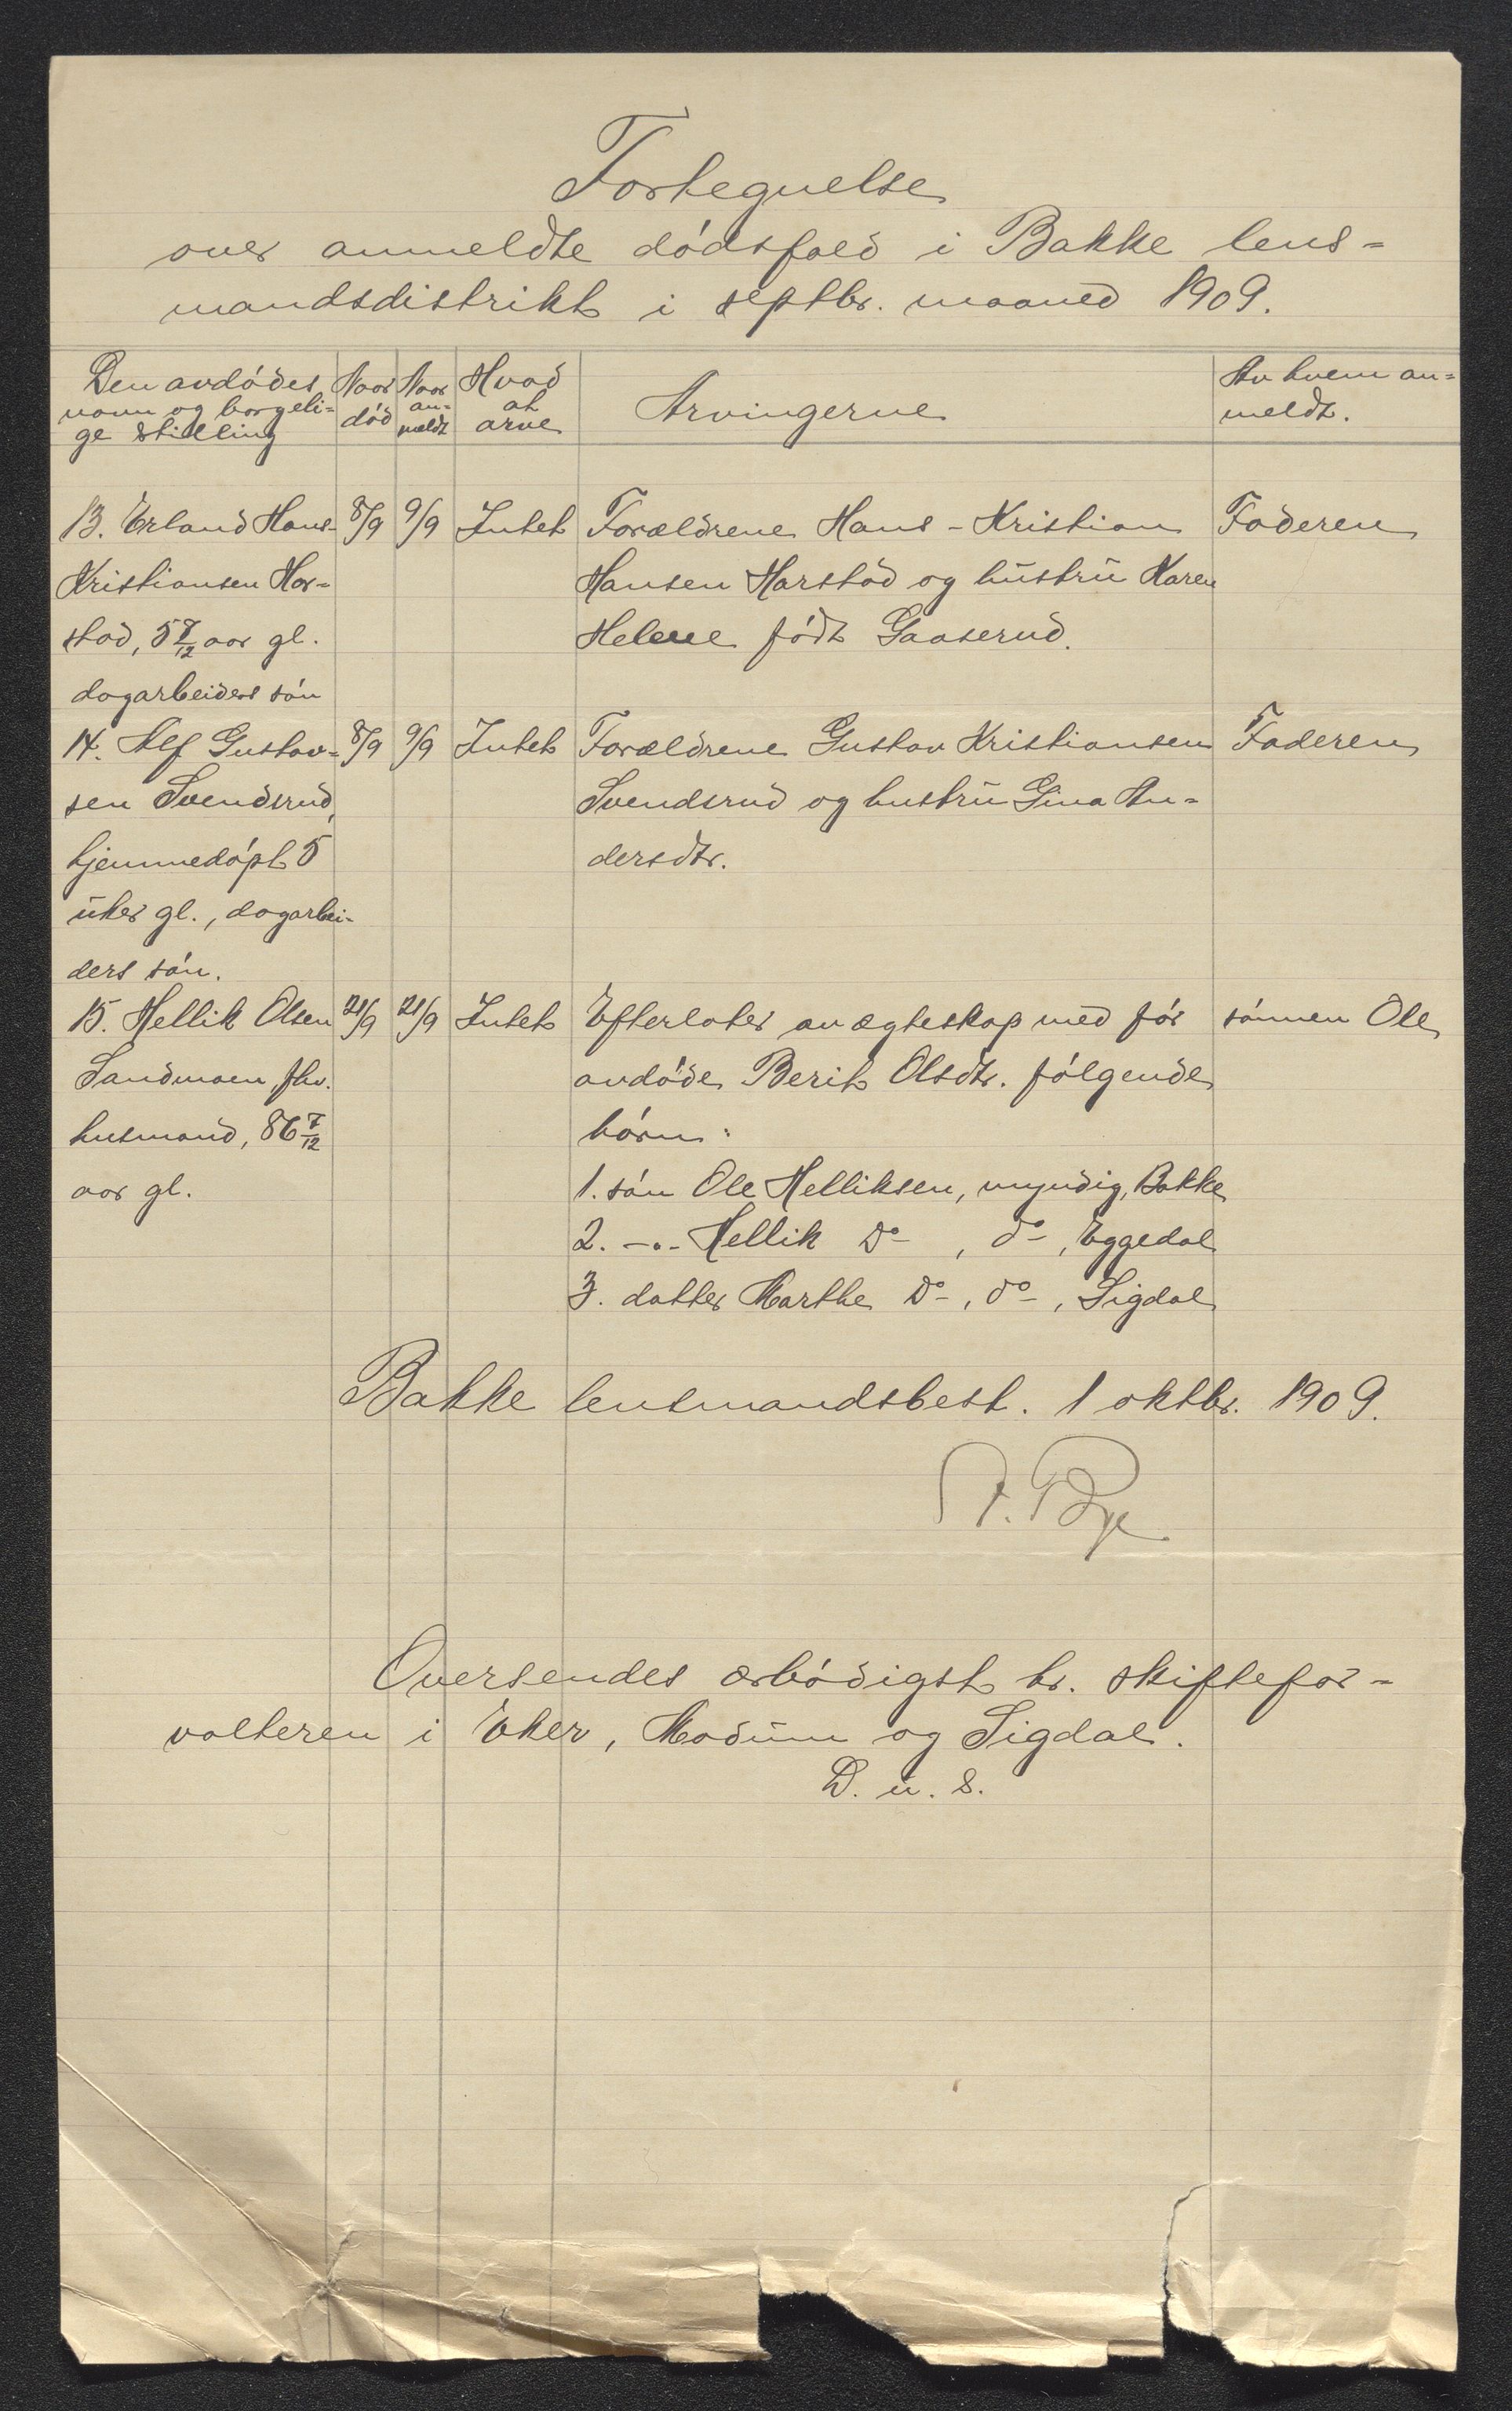 Fortegnelse
over anmeldte dødsfald i Bakke lens-
mandsdistrikt i septbr. maaned 1909.
Den avdødes navn og borgerli-ge stilling | Naar død | Naar an-meldt | Hvad at arve | Arvingerne | Av hvem an-meldt.
13. Erland Hans- 8/9 9/9 Intet Forældrene Hans-Kristian Faderen
Kristiansen Har- Hansen Harstad og hustru Karen
stad, 5 7/12 aar gl. Helene født Gaaserud.
dagarbeiders søn
14. Alf Gustav- 8/9 9/9 Intet Forældrene Gustav Kristiansen Faderen
sen Svendsrud, Svendsrud og hustru Gina An-
hjemmedøpt 5 dersdtr.
uker gl., dagarbei-
ders søn.
15. Hellik Olsen 21/9 21/9 Intet Efterlater av ægteskap med før sønnen Ole
Sandmoen, fhv. avdøde Berit Olsdtr. følgende
husmand, 86 7/12 børn:
aar gl. 1. søn Ole Helliksen, myndig, Bakke
2. -"- Hellik Do , do , Eggedal
3. datter Marthe Do , do , Sigdal
Bakke lensmandsbest. 1 oktbr. 1909.
A. Bye
Oversendes ærbødigst hr. skiftefor-
valteren i Eker, Modum og Sigdal.
D. u. s.